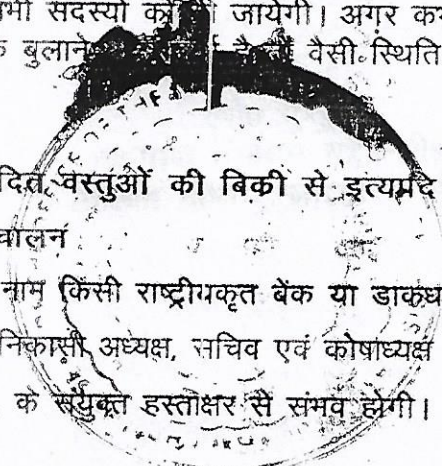 भी सदस्यो को दी जायेगी। अगर
बुलाने वैसी स्थिति
वस्तुओं की बिकी से इत्यमदे
चालन
नाम किसी राष्ट्रीयकृत बेंक या डाकघ
निकासी अध्यक्ष, सचिव एवं कोषाध्यक्ष
के संयुक्त हस्ताक्षर से संभव होगी।